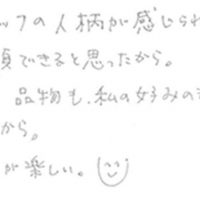 ッフの人柄が感じられ
頼できると思ったから。
品物も、私の好みの
から。
が楽しい。